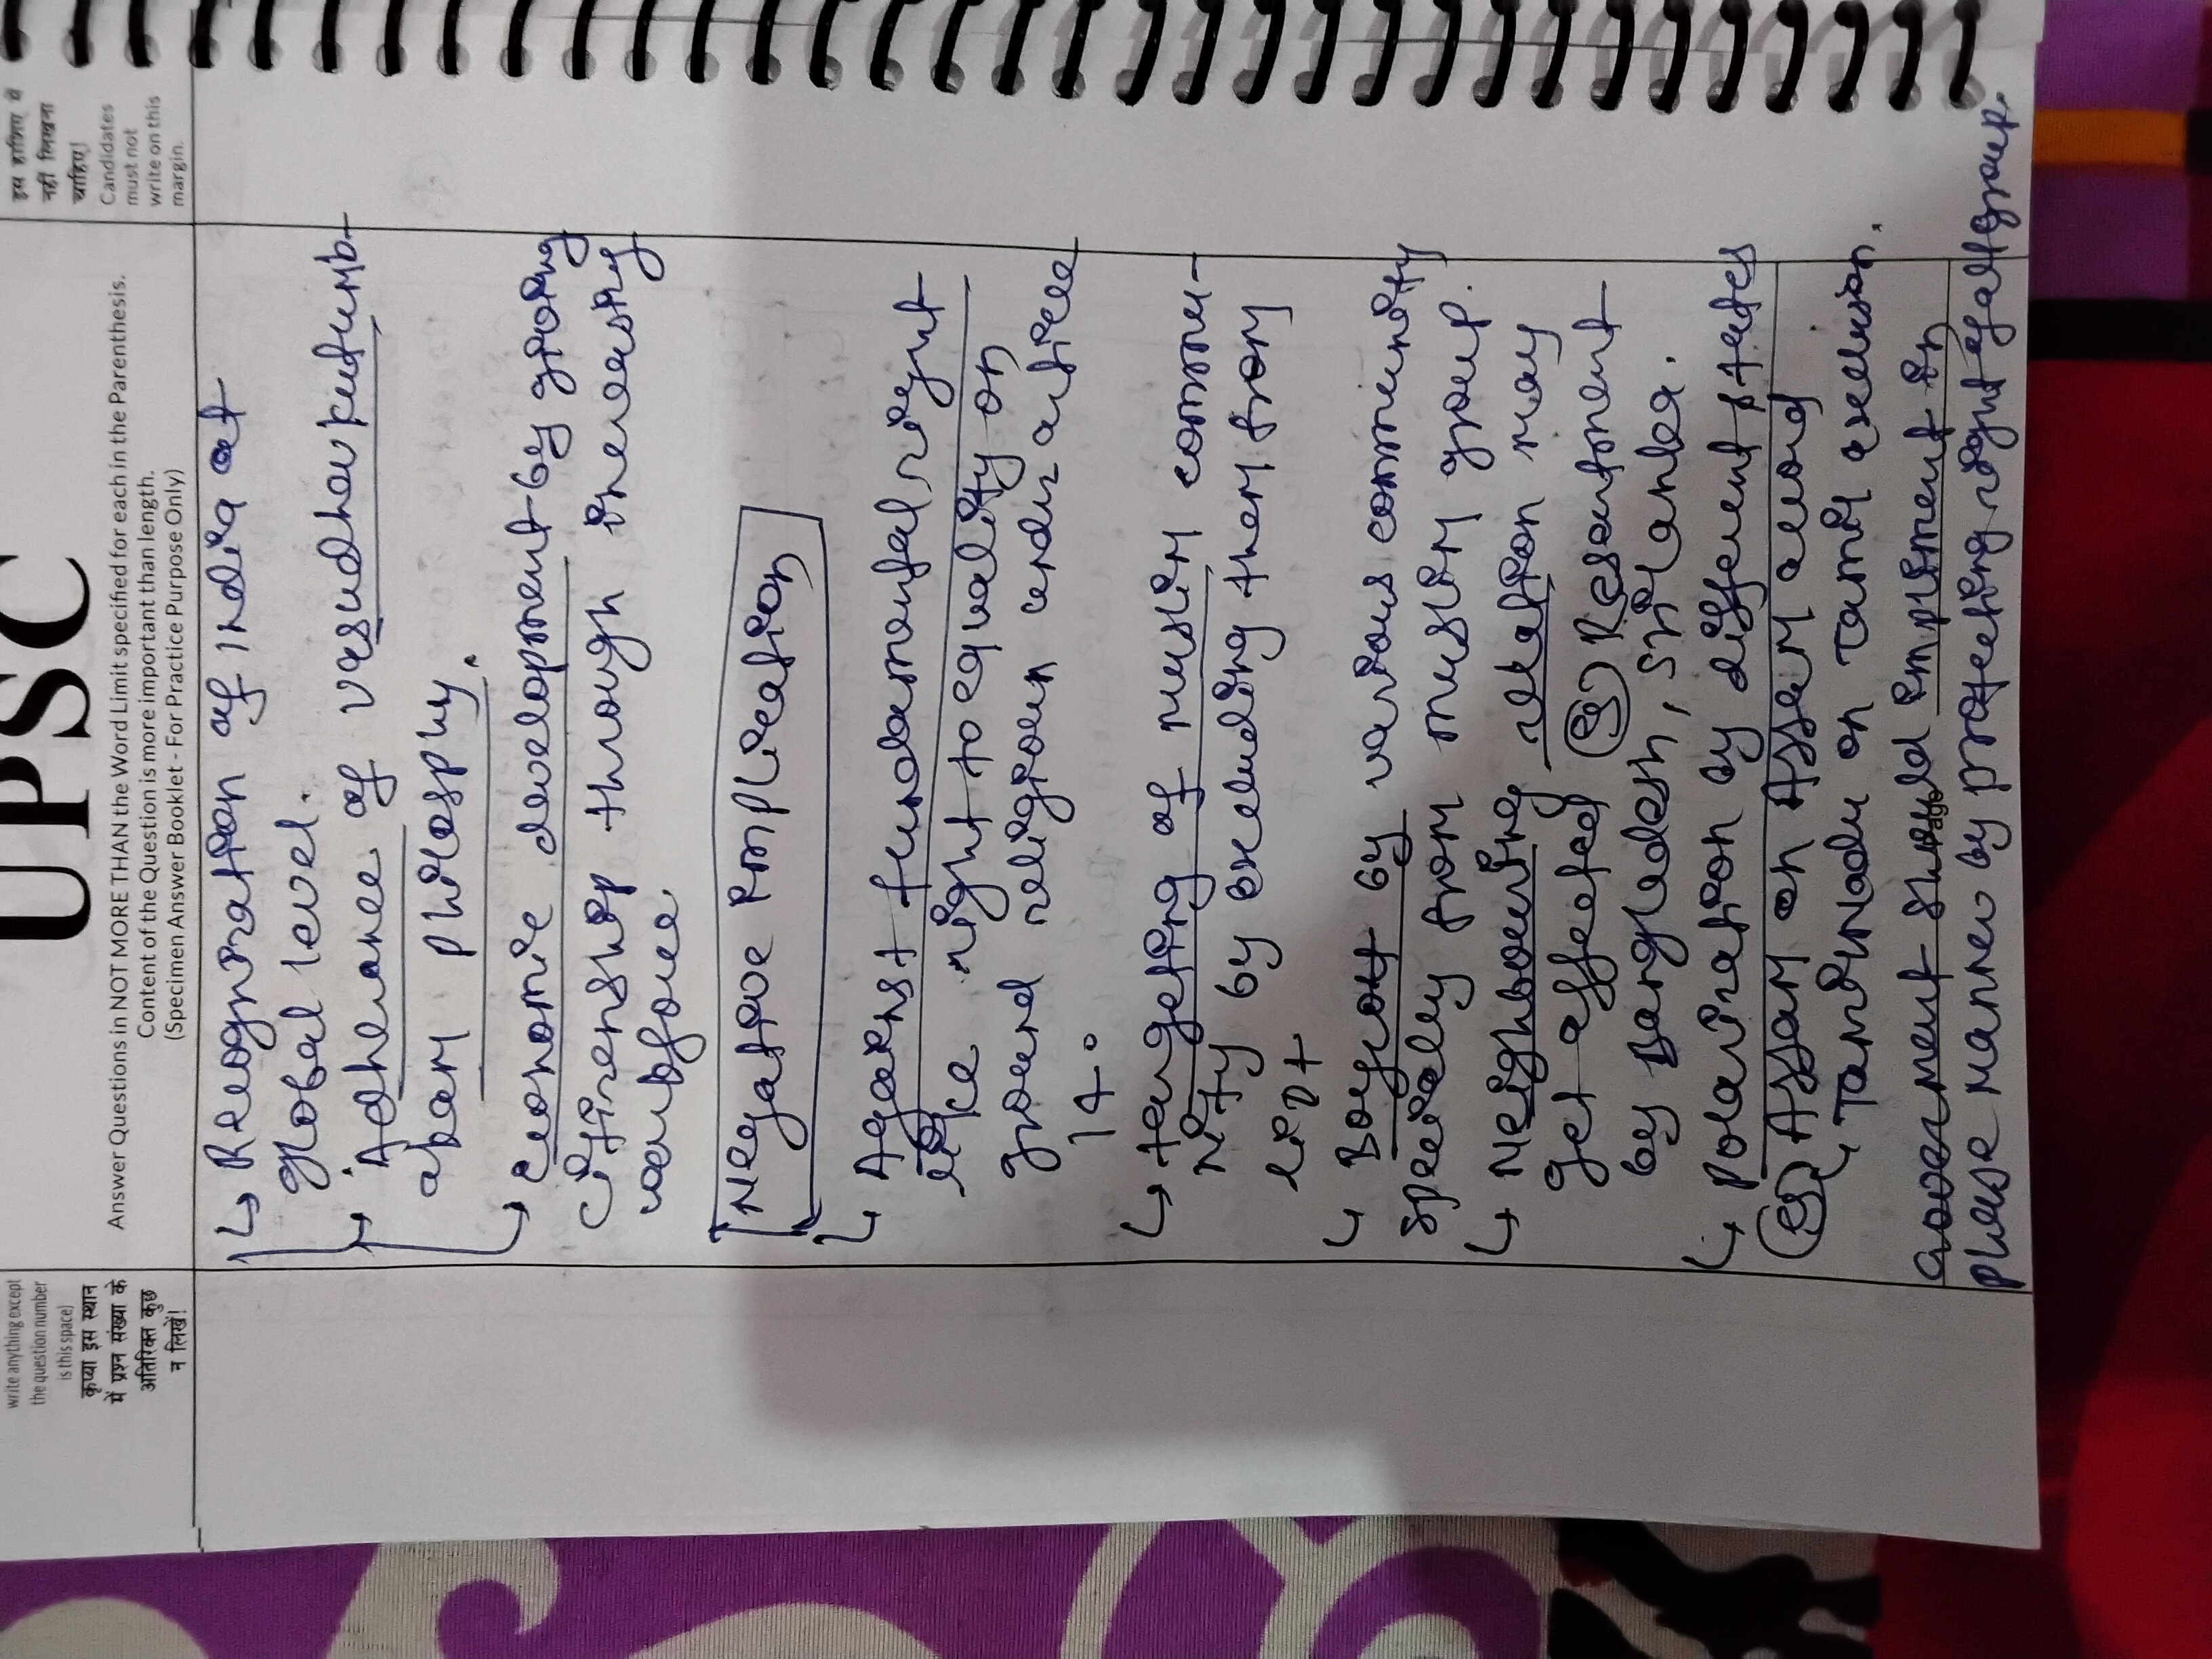 write anything except
the question number
is this space)
कृप्या इस स्थान
में प्रश्न संख्या के
अतिरिक्त कुछ
न लिखें!
UPSC
Answer Questions in NOT MORE THAN the Word Limit specified for each in the Parenthesis.
Content of the Question is more important than length.
(Specimen Answer Booklet - For Practice Purpose Only)
इस हाशिए में
नहीं लिखना
चाहिए!
Candidates
must not
write on this
margin.
↳ Recognization of India at
global level.
↳ Adherance of vasudhaivkutumb-
akam philosphy.
↳ Economic development by giving
citizenship through increasing
workforce
Negative Implication
↳ Against fundamental right
like right to equality on
ground religious under article
14.
↳ targeting of muslim commu-
nity by excluding them from
list
↳ Boycott by various community
specially from muslim group.
↳ Neighbouring relation may
get affected eg Resentment
by Bangladesh, Srilanka.
↳ polarization by different states
eg Assam on Assam accord
, TamilNadu on Tamil exclusion.
Government should impliment in
phase manner by protecting right of all group.